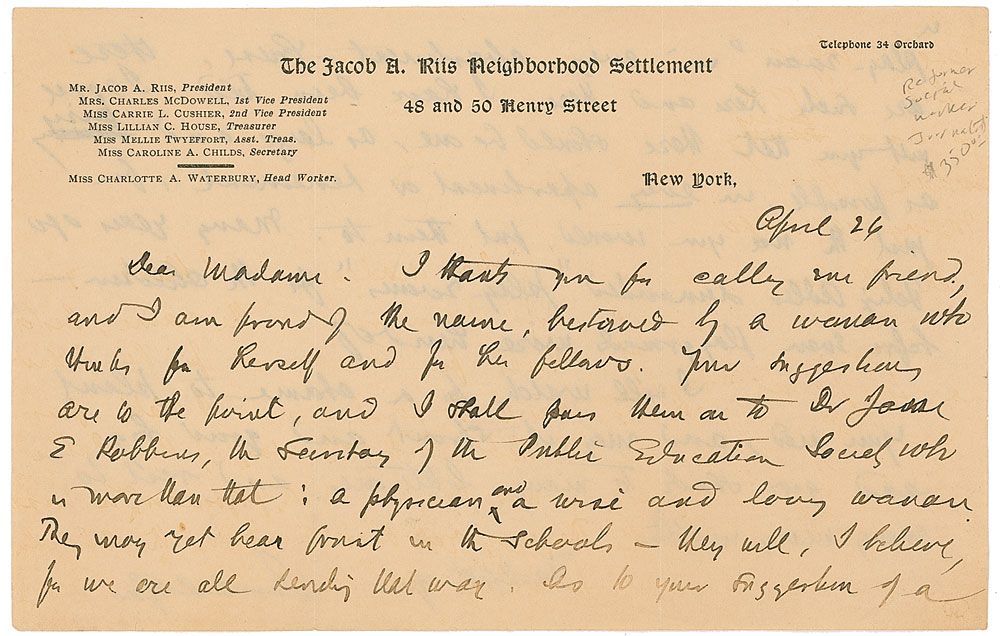 Telephone 34 Orchard
The Jacob A. Riis Neighborhood Settlement
48 and 50 Henry Street
Mr. Jacob A. Riis, President
Mrs. Charles McDowell, 1st Vice President
Miss Carrie L. Cushier, 2nd Vice President
Miss Lillian C. House, Treasurer
Miss Mellie Twyeffort, Asst. Treas.
Miss Caroline A. Childs, Secretary
Miss Charlotte A. Waterbury, Head Worker.
Reformer
Social
worker
Journalist
$350.00
New York,
April 26
Dear Madame: I thank you for calling me friend,
and I am proud of the name, bestowed by a woman who
thinks for herself and for her fellows. Your suggestions
are to the point, and I shall pass them on to Dr Jane
E Robbins, the Secretary of the Public Education Society who
is more than that: a physician and a wise and loving woman.
They may yet bear fruit in the schools — they will, I believe,
for we are all tending that way. As to your suggestion of a